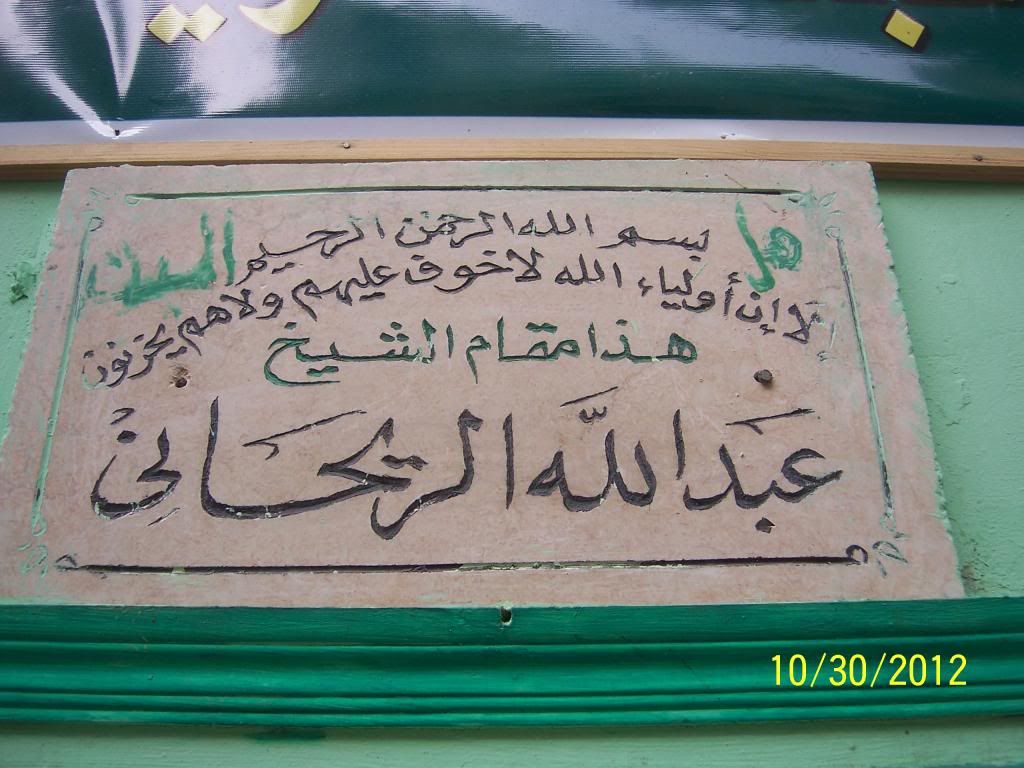 بسم الله الرحمن الرحيم
لا إن أولياء الله لا خوف عليهم ولا هم يحزنون
هذا مقام الشيخ
عبد الله الريحاني
10/30/2012